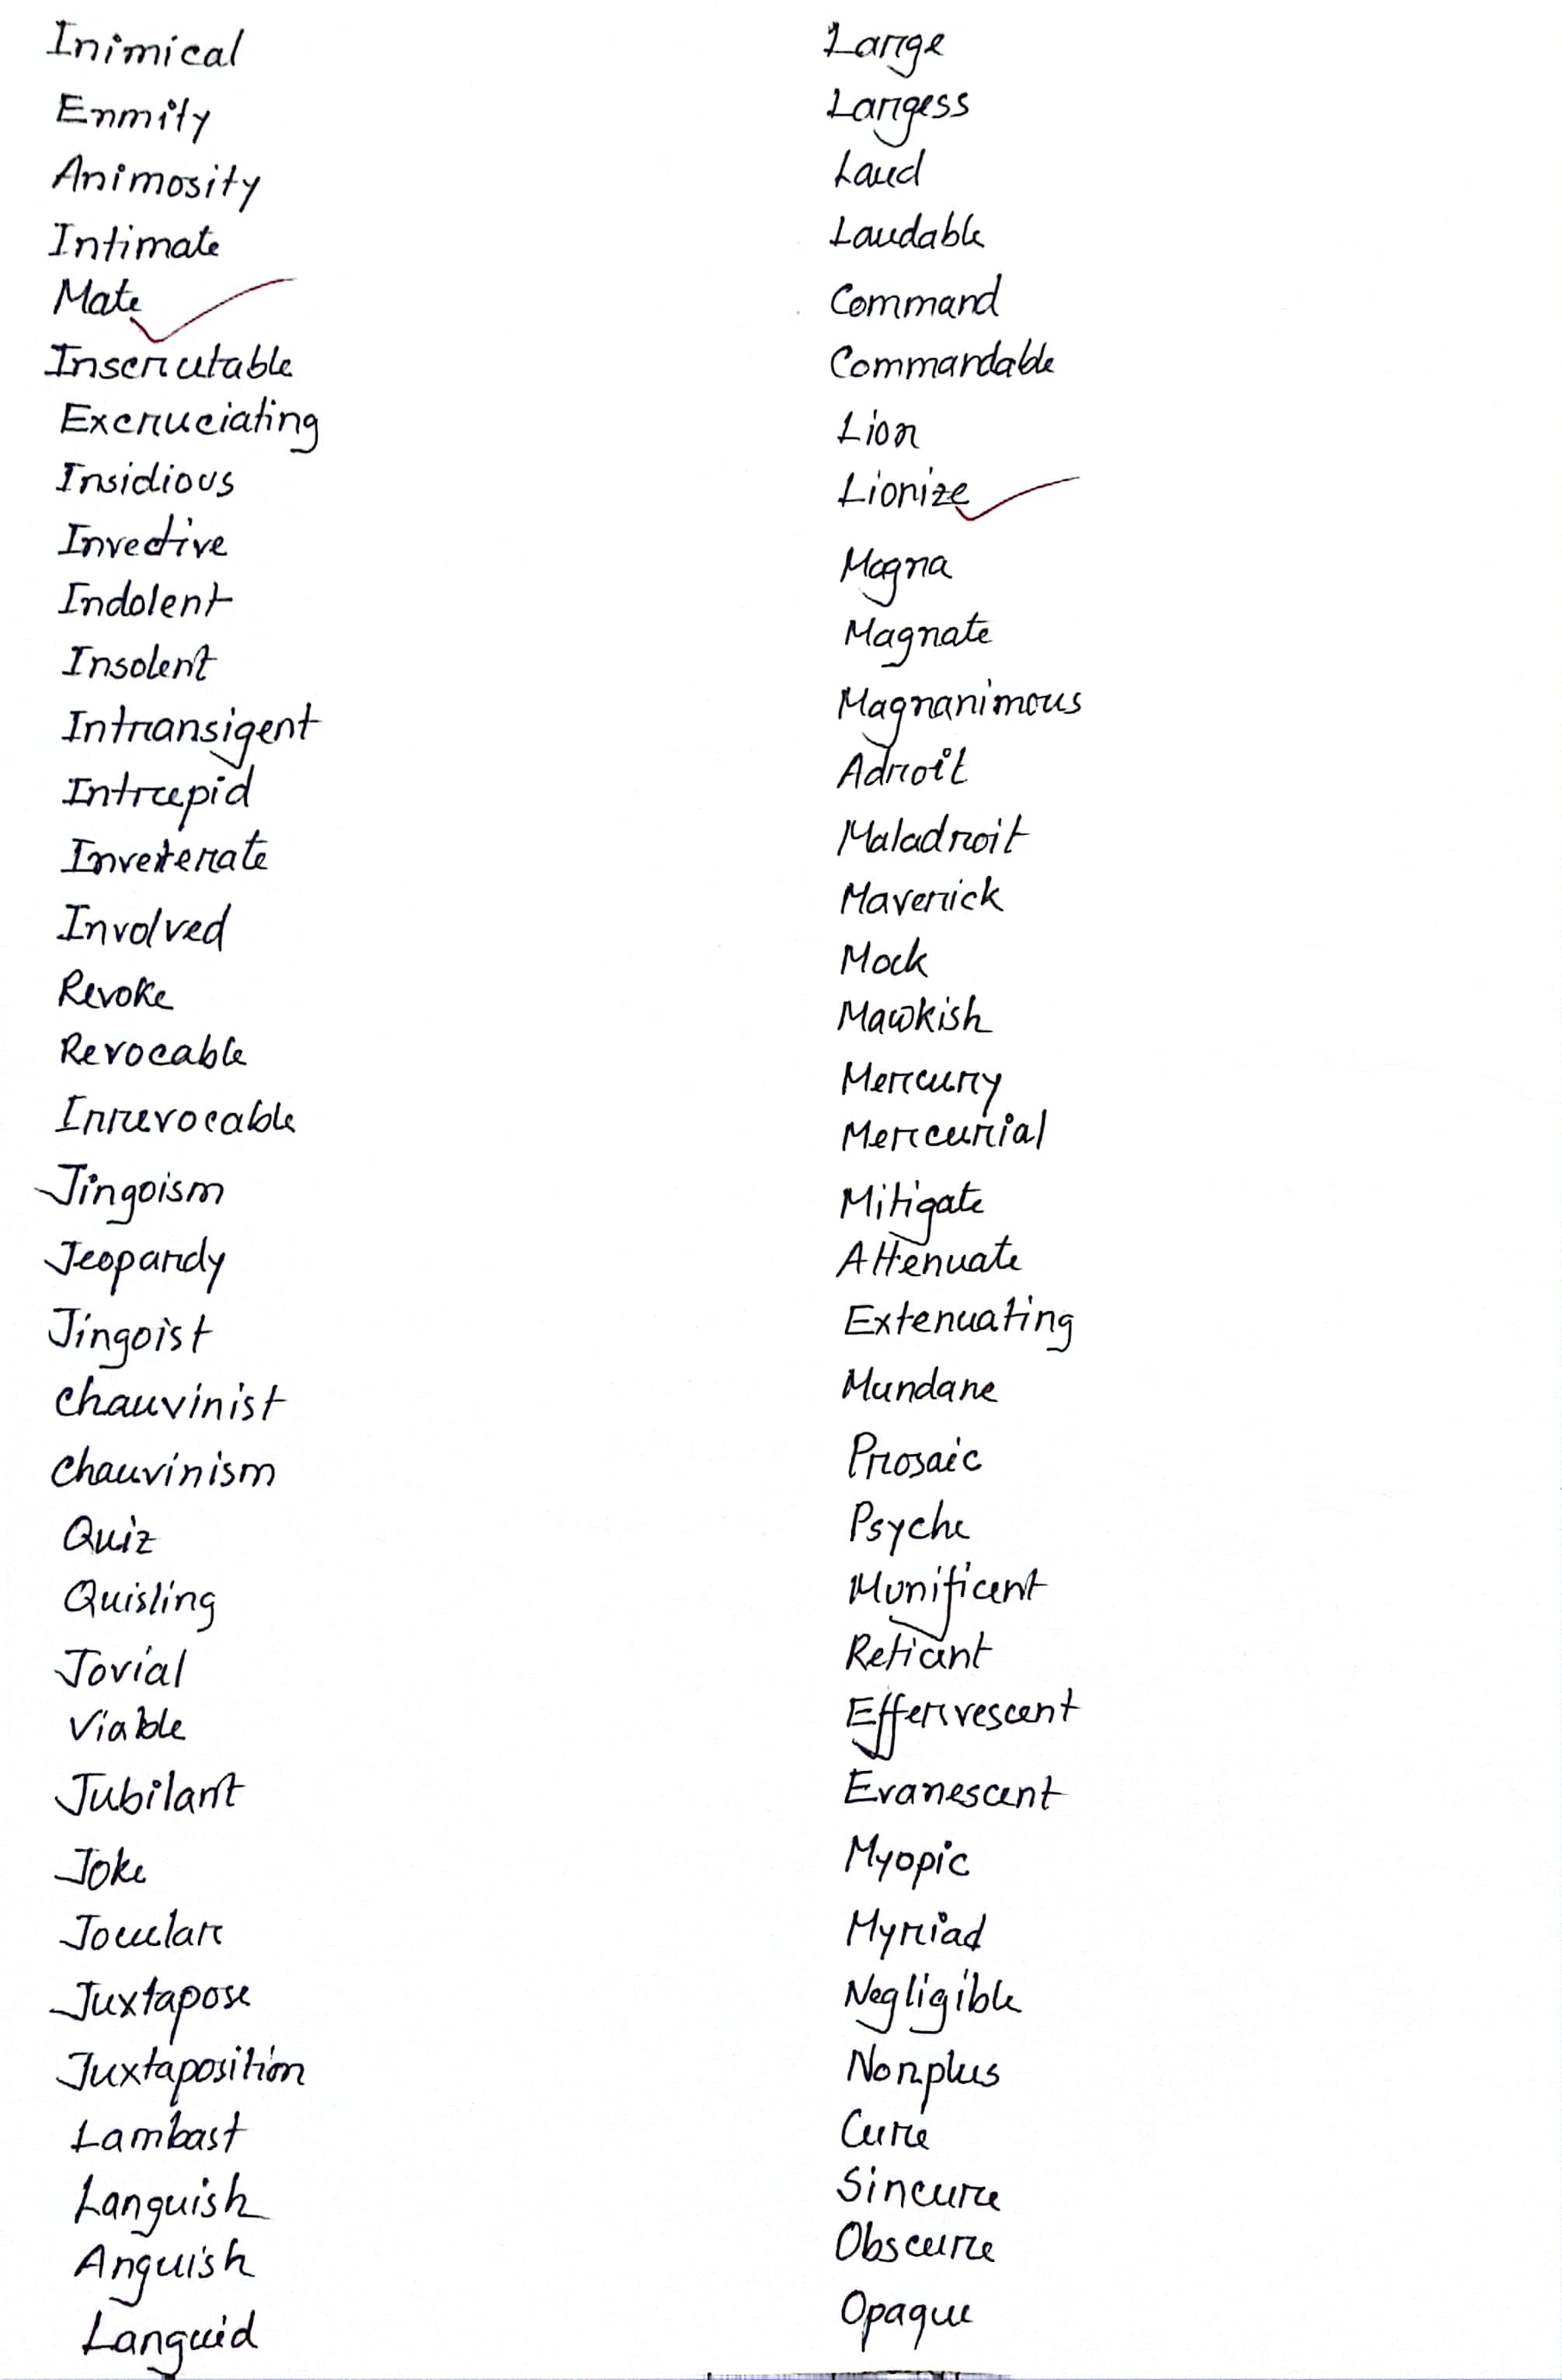 Inimical
Enmity
Animosity
Intimate
Mate
Inscrutable
Excruciating
Insidious
Invective
Indolent
Insolent
Intransigent
Intrepid
Inveterate
Involved
Revoke
Revocable
Irrevocable
Jingoism
Jeopardy
Jingoist
Chauvinist
Chauvinism
Quiz
Quisling
Jovial
Viable
Jubilant
Joke
Jocular
Juxtapose
Juxtaposition
Lambast
Languish
Anguish
Languid
Large
Largess
Laud
Laudable
Command
Commandable
Lion
Lionize
Magna
Magnate
Magnanimous
Adroit
Maladroit
Maverick
Mock
Mawkish
Mercury
Mercurial
Mitigate
Attenuate
Extenuating
Mundane
Prosaic
Psyche
Munificent
Reticent
Effervescent
Evanescent
Myopic
Myriad
Negligible
Nonplus
Cure
Sincure
Obscure
Opaque